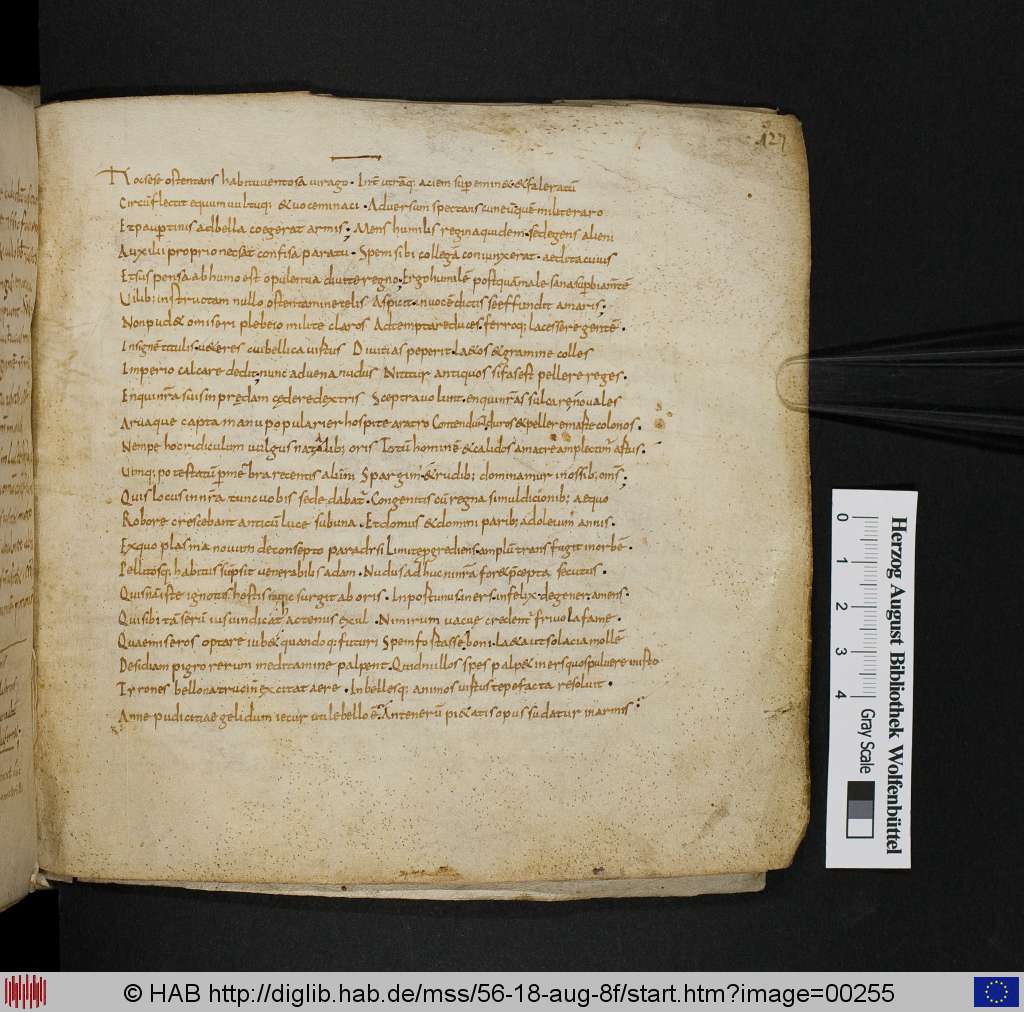 127
Hoc sese ostentans habitu ventosa virago. Int utraq; aciem sup eminet & faleratū
Circūflectit equum vultuq; & voce minaci. Adversum spectans cuneū quē milite raro
Et paup tinus ad bella coegerat armis; Mens humilis regina quidem. sed egens alieni
Auxilii proprio necsat confisa paratu. Spem sibi collegā coniunxerat. aedita cuius
Et suspensa ab humo est opulentia divite regno. Ergo humilē postquā male sana supbiamtē
Vilib; instructam nullo ostentamine telis Aspicit. in vocē dictis se effundit amaris;
Non pud& o miseri plebeio milite claros Adtemptare duces. ferroq; lacessere gentē.
Insignē titulis. v&eres cui bellica virtus Divitias peperit. la&os & gramine colles
Imperio calcare dedit; nunc advena nudus Nititur antiquos si fas est pellere reges.
En quinrā suis in prędam cędere dextris Sceptra volunt. en quinrās sulcare novales
Arvaque capta manu popularier hospite aratro Contendunt duros & pellere marte colonos.
Nempe hoc ridiculum vulgus natalib; oris Totū hominē & calidos a matre amplectim artus.
Utriq; potestatū p mēbra recentis alūni Spargim & rudib; dominamur in ossib; oms;
Quis locus in nrā tunc vobis sede dabat. Congenitis cū regna simul dicionib; aequo
Robore crescebant anticū luce sub una. Et domus & domini parib; adoleum annis.
Ex quo plasma novum de consepto paradisi Limite pgrediens. amplū transfugit in orbē.
Pellitosq; habitus sūpsit venerabilis adam. Nudus adhuc ninrā for& pcepta secutus.
Quisnā iste ignotis hostis surgit ab oris. Inportunus. iners. infelix. degener. amens.
Qui sibi tā serū ius vindicat hactenus exul. Nimirum vacue credent frivola fame.
Quae miseros optare iub& quandoq; futuri Spem fortasse boni. la& aut solacia mollē
Desidiam pigro rerum meditamine palpent. Quid nullos spes palp& iners quos pulvere in isto
Tirones bellona truci nē excitat aere. Inbellesq; animos virtus tepefacta resolvit.
Anne pudicitiae gelidum iecur utile bello ē. An tenerū pi&atis opus sudatur in armis
0 1 2 3 4
Gray Scale
Herzog August Bibliothek Wolfenbüttel
© HAB http://diglib.hab.de/mss/56-18-aug-8f/start.htm?image=00255